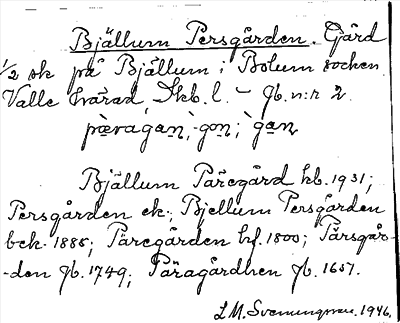 Bjällum Persgården. Gård
1/2 sk på Bjällum i Bolum socken
Valle härad, Skb. l. – Jb. n:r 2.
pæragan, -gon, gan
Bjällum Päregård hb. 1931;
Persgården ek.; Bjellum Persgården
bek. 1885; Päregården hf. 1800; Pärsgår-
-den Jb. 1749; Päragårdhen Jb. 1657.
L M. Svenungsson. 1946.